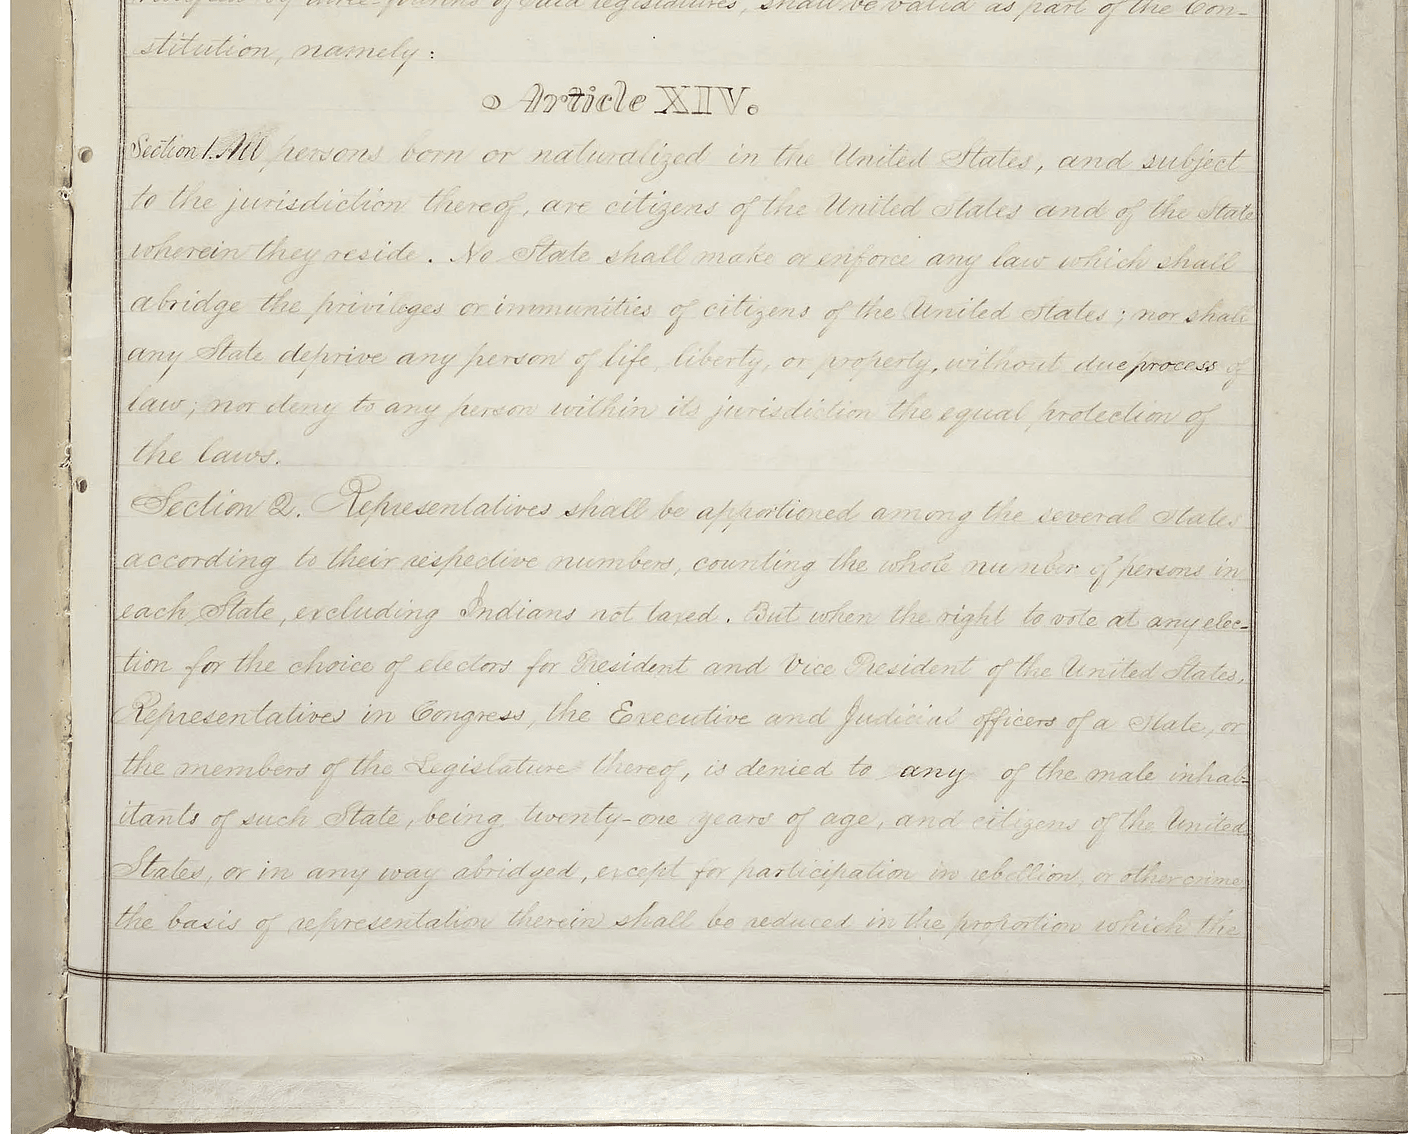 ratified by three-fourths of said legislatures, shall be valid as part of the Con-
stitution, namely:
Article XIV.
Section 1. All persons born or naturalized in the United States, and subject
to the jurisdiction thereof, are citizens of the United States and of the State
wherein they reside. No State shall make or enforce any law which shall
abridge the privileges or immunities of citizens of the United States; nor shall
any State deprive any person of life, liberty, or property, without due process of
law; nor deny to any person within its jurisdiction the equal protection of
the laws.
Section 2. Representatives shall be apportioned among the several States
according to their respective numbers, counting the whole number of persons in
each State, excluding Indians not taxed. But when the right to vote at any elec-
tion for the choice of electors for President and Vice President of the United States,
Representatives in Congress, the Executive and Judicial officers of a State, or
the members of the Legislature thereof, is denied to any of the male inhab-
itants of such State, being twenty-one years of age, and citizens of the United
States, or in any way abridged, except for participation in rebellion, or other crime
the basis of representation therein shall be reduced in the proportion which the